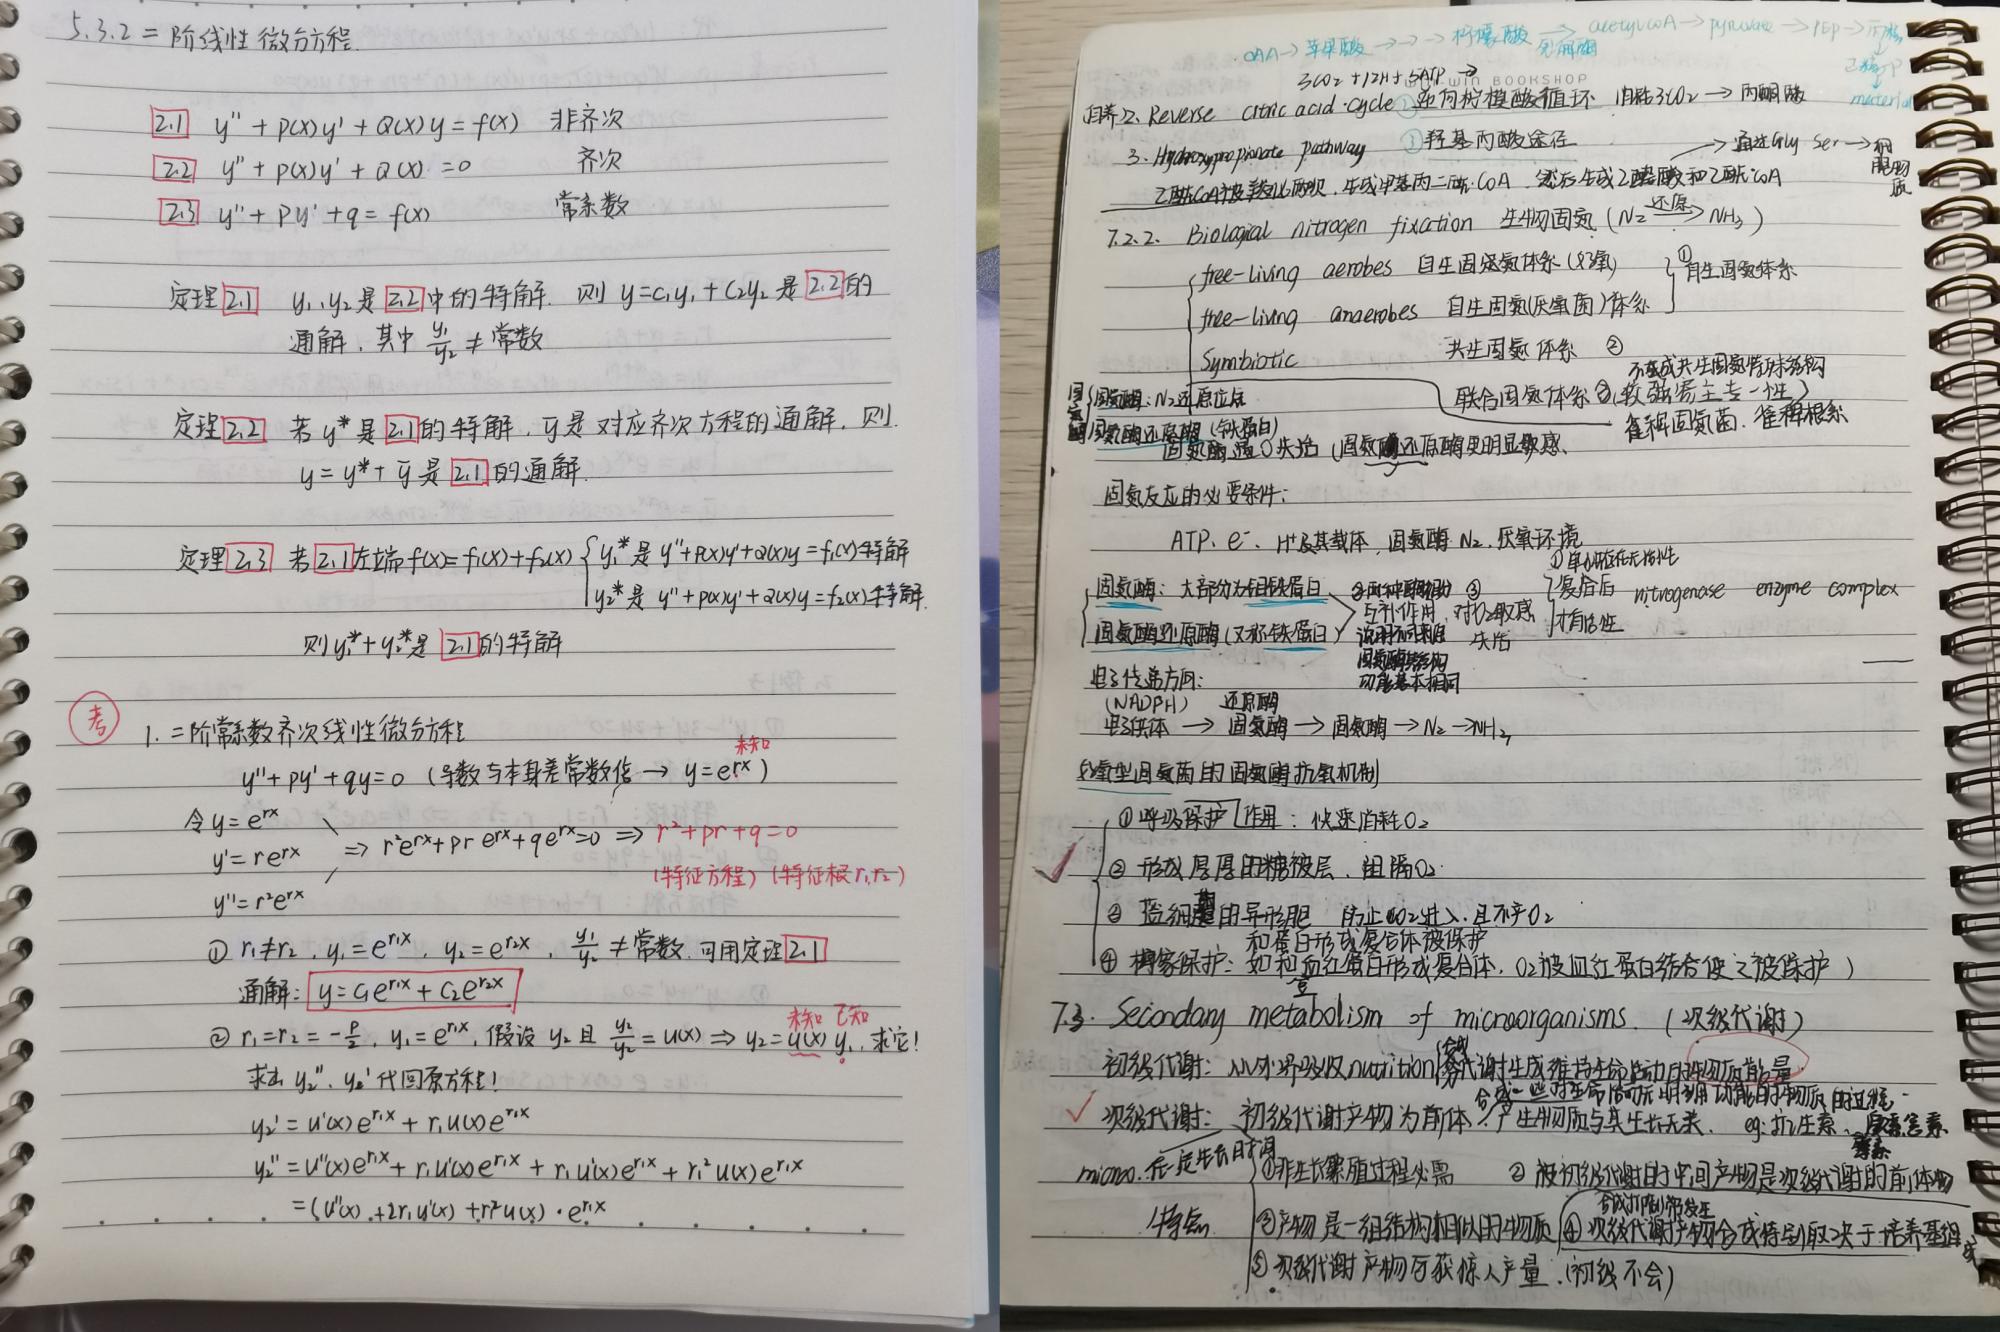 5.3.2 二阶线性微分方程.
2.1 y″ + p(x)y′ + Q(x)y = f(x) 非齐次
2.2 y″ + p(x)y′ + Q(x) = 0 齐次
2.3 y″ + py′ + q = f(x) 常系数
定理2.1 y₁,y₂是2.2中的特解. 则 y=c₁y₁+c₂y₂是2.2的
通解,其中 y₁/y₂ ≠ 常数
定理2.2 若y*是2.1的特解,ȳ是对应齐次方程的通解,则.
y = y* + ȳ是2.1的通解.
定理2.3 若2.1左端f(x)=f₁(x)+f₂(x) { y₁*是 y″+p(x)y′+Q(x)y=f₁(x)特解
y₂*是 y″+p(x)y′+Q(x)y=f₂(x)特解.
则y₁*+y₂*是2.1的特解
考
1. 二阶常系数齐次线性微分方程
未知
y″+py′+qy=0 (导数与本身差常数倍 → y=e^rx)
令y=e^rx
y′=re^rx ⇒ r²e^rx+pre^rx+qe^rx=0 ⇒ r²+pr+q=0
(特征方程) (特征根r₁,r₂)
y″=r²e^rx
① r₁≠r₂, y₁=e^r₁x, y₂=e^r₂x, y₁/y₂ ≠常数.可用定理2.1
通解: y=c₁e^r₁x+c₂e^r₂x
未知 已知
② r₁=r₂=-p/2, y₁=e^r₁x,假设 y₂ 且 y₂/y₂=u(x) ⇒ y₂=u(x)y₁,求它!
求出 y₂″、y₂′代回原方程!
y₂′=u′(x)e^r₁x+r₁u(x)e^r₁x
y₂″=u″(x)e^r₁x+r₁u′(x)e^r₁x+r₁u′(x)e^r₁x+r₁²u(x)e^r₁x
=(u″(x)+2r₁u′(x)+r²u(x))·e^r₁x
OAA→苹果酸→→→柠檬酸→acetylcoA→pyruvate→PEP→
material
3CO₂+12H+5ATP →
WIN BOOKSHOP
自养2. Reverse citric acid cycle ① 逆向柠檬酸循环 消耗3CO₂→丙酮酸
3. Hydroxypropionate pathway ③羟基丙酸途径
→通过Gly Ser→细胞物质
乙酰CoA被羧化两次,生成甲基丙二酰CoA,然后生成乙醛酸和乙酰CoA
7.2.2. Biological nitrogen fixation 生物固氮 (N₂ 还原→ NH₃)
free-living aerobes 自生固氮体系(好氧) ①自生固氮体系
free-living anaerobes 自生固氮(厌氧菌)体系
Symbiotic 共生固氮体系 ②
不形成共生固氮特殊结构
联合固氮体系③(较强寄主专一性)
雀稗固氮菌、雀稗根系
固氮酶 固氮酶:N₂还原位点
固氮酶还原酶(铁蛋白)
固氮酶遇O失活(固氮酶还原酶更明显敏感.
固氮反应的必要条件:
ATP、e⁻、H⁺及其载体,固氮酶,N₂,厌氧环境
①单独存在无活性
固氮酶:大部分为钼铁蛋白
固氮酶还原酶(又称铁蛋白
②两种酶组分 ③
互补作用,对O₂敏感
说明不同来源 失活
固氮酶其结构
功能基本相同
复合后 nitrogenase enzyme complex
才有活性
电子传递方向:
(NADPH) 还原酶
电子供体 → 固氮酶 → 固氮酶 → N₂ → NH₃
好氧型固氮菌的固氮酶抗氧机制
①呼吸保护作用:快速消耗O₂
② 形成厚厚的糖被层,阻隔O₂.
③ 蓝细菌的异形胞 防止O2进入,且不产O₂
和蛋白形成复合体被保护
④ 构象保护:如和豆血红蛋白形成复合体,O₂被血红蛋白结合使之被保护)
7.3. Secondary metabolism of microorganisms.(次级代谢)
初级代谢:从外界吸收nutrition 代谢生成维持生命活动的物质能量
合成一些对生命活动无明确功能的物质的过程.
次级代谢:初级代谢产物为前体,产生物质与其生长无关. eg:抗生素、
micro.在一定生长时期
特点
①非生长繁殖过程必需 ② 被初级代谢的中间产物是次级代谢的前体物
③产物是一组结构相似的物质 ④次级代谢产物合成特别取决于培养基组成
⑤次级代谢产物可获惊人产量.(初级不会)